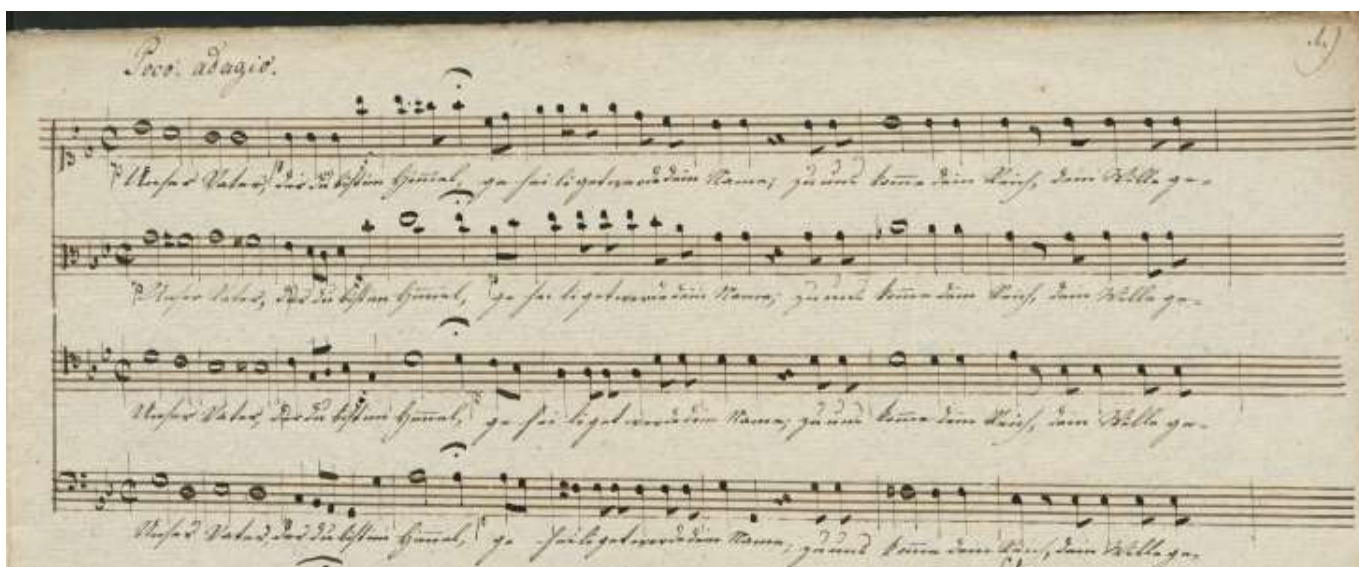 Poco: adagio.
1.)
Unser Vater, der du bist im Himmel, ge-heiliget werde dein Name; zu uns komme dein Reich, dein Wille ge-
Unser Vater, der du bist im Himmel, ge-heiliget werde dein Name; zu uns komme dein Reich, dein Wille ge-
Unser Vater, der du bist im Himmel, ge-heiliget werde dein Name; zu uns komme dein Reich, dein Wille ge-
Unser Vater, der du bist im Himmel, ge heiliget werde dein Name; zu uns komme dein Reich, dein Wille ge-